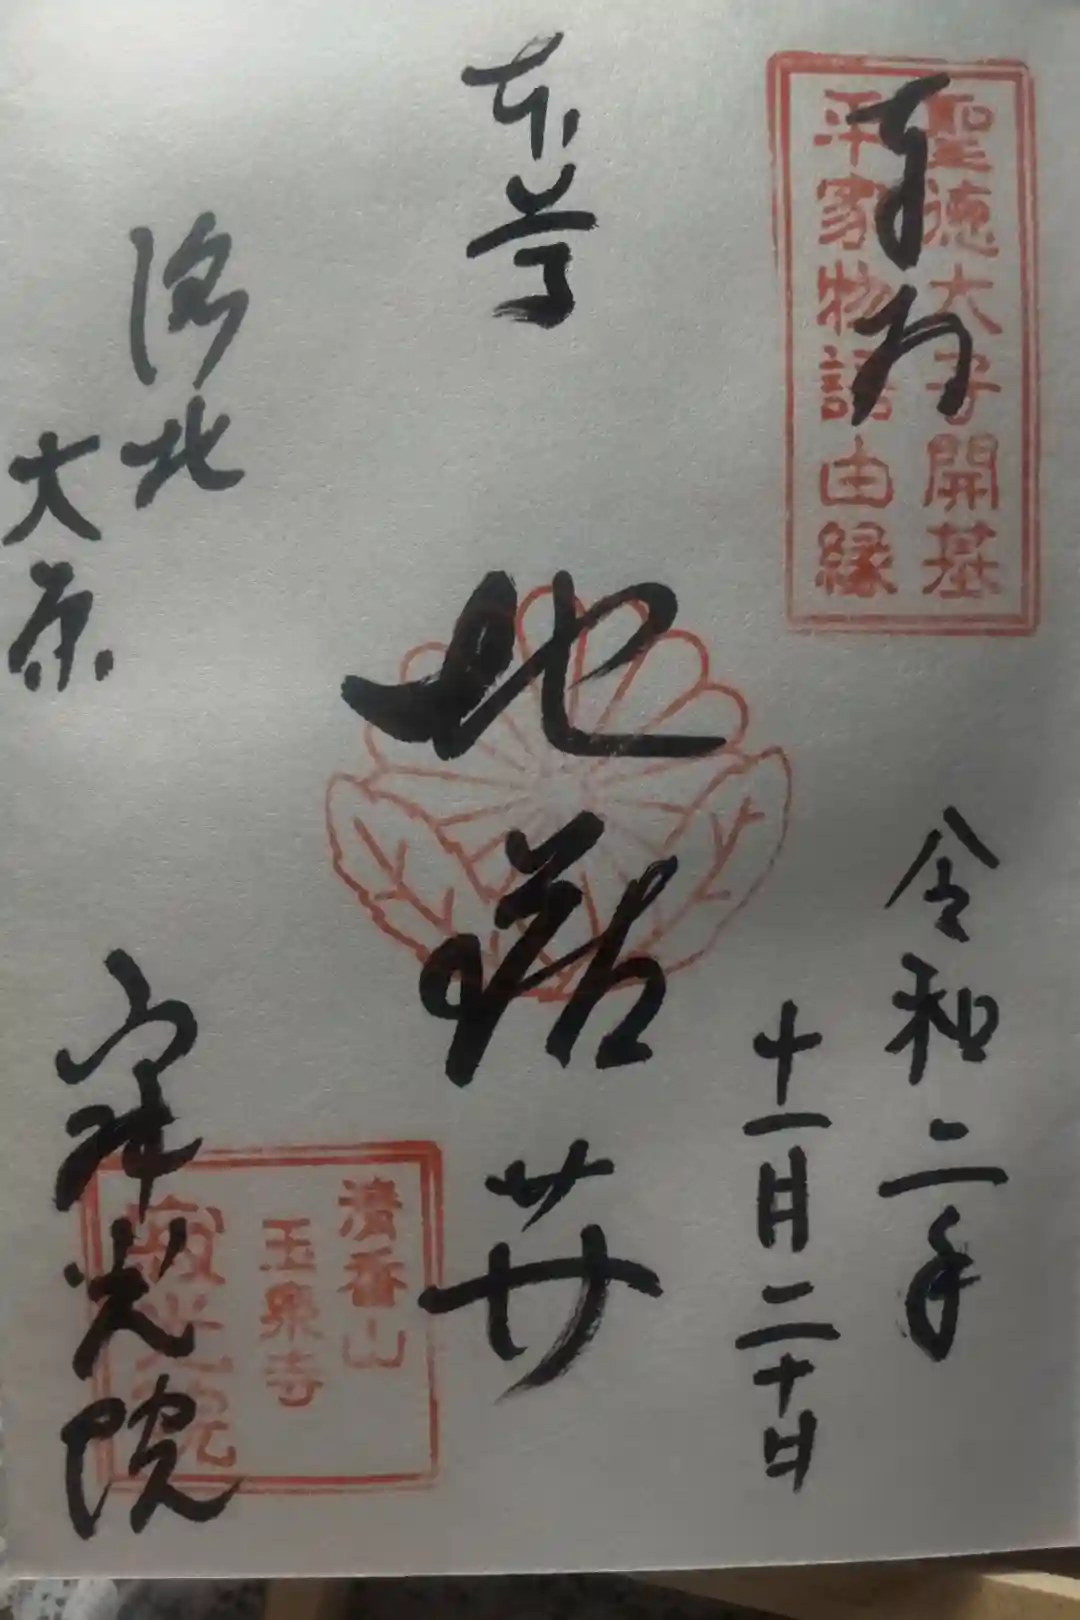 奉拝
聖徳大子開基
平家物語由縁
令和二年
十一月二十日
本尊
地蔵尊
洛北
大原
寂光院
清香山
玉泉寺
寂光院